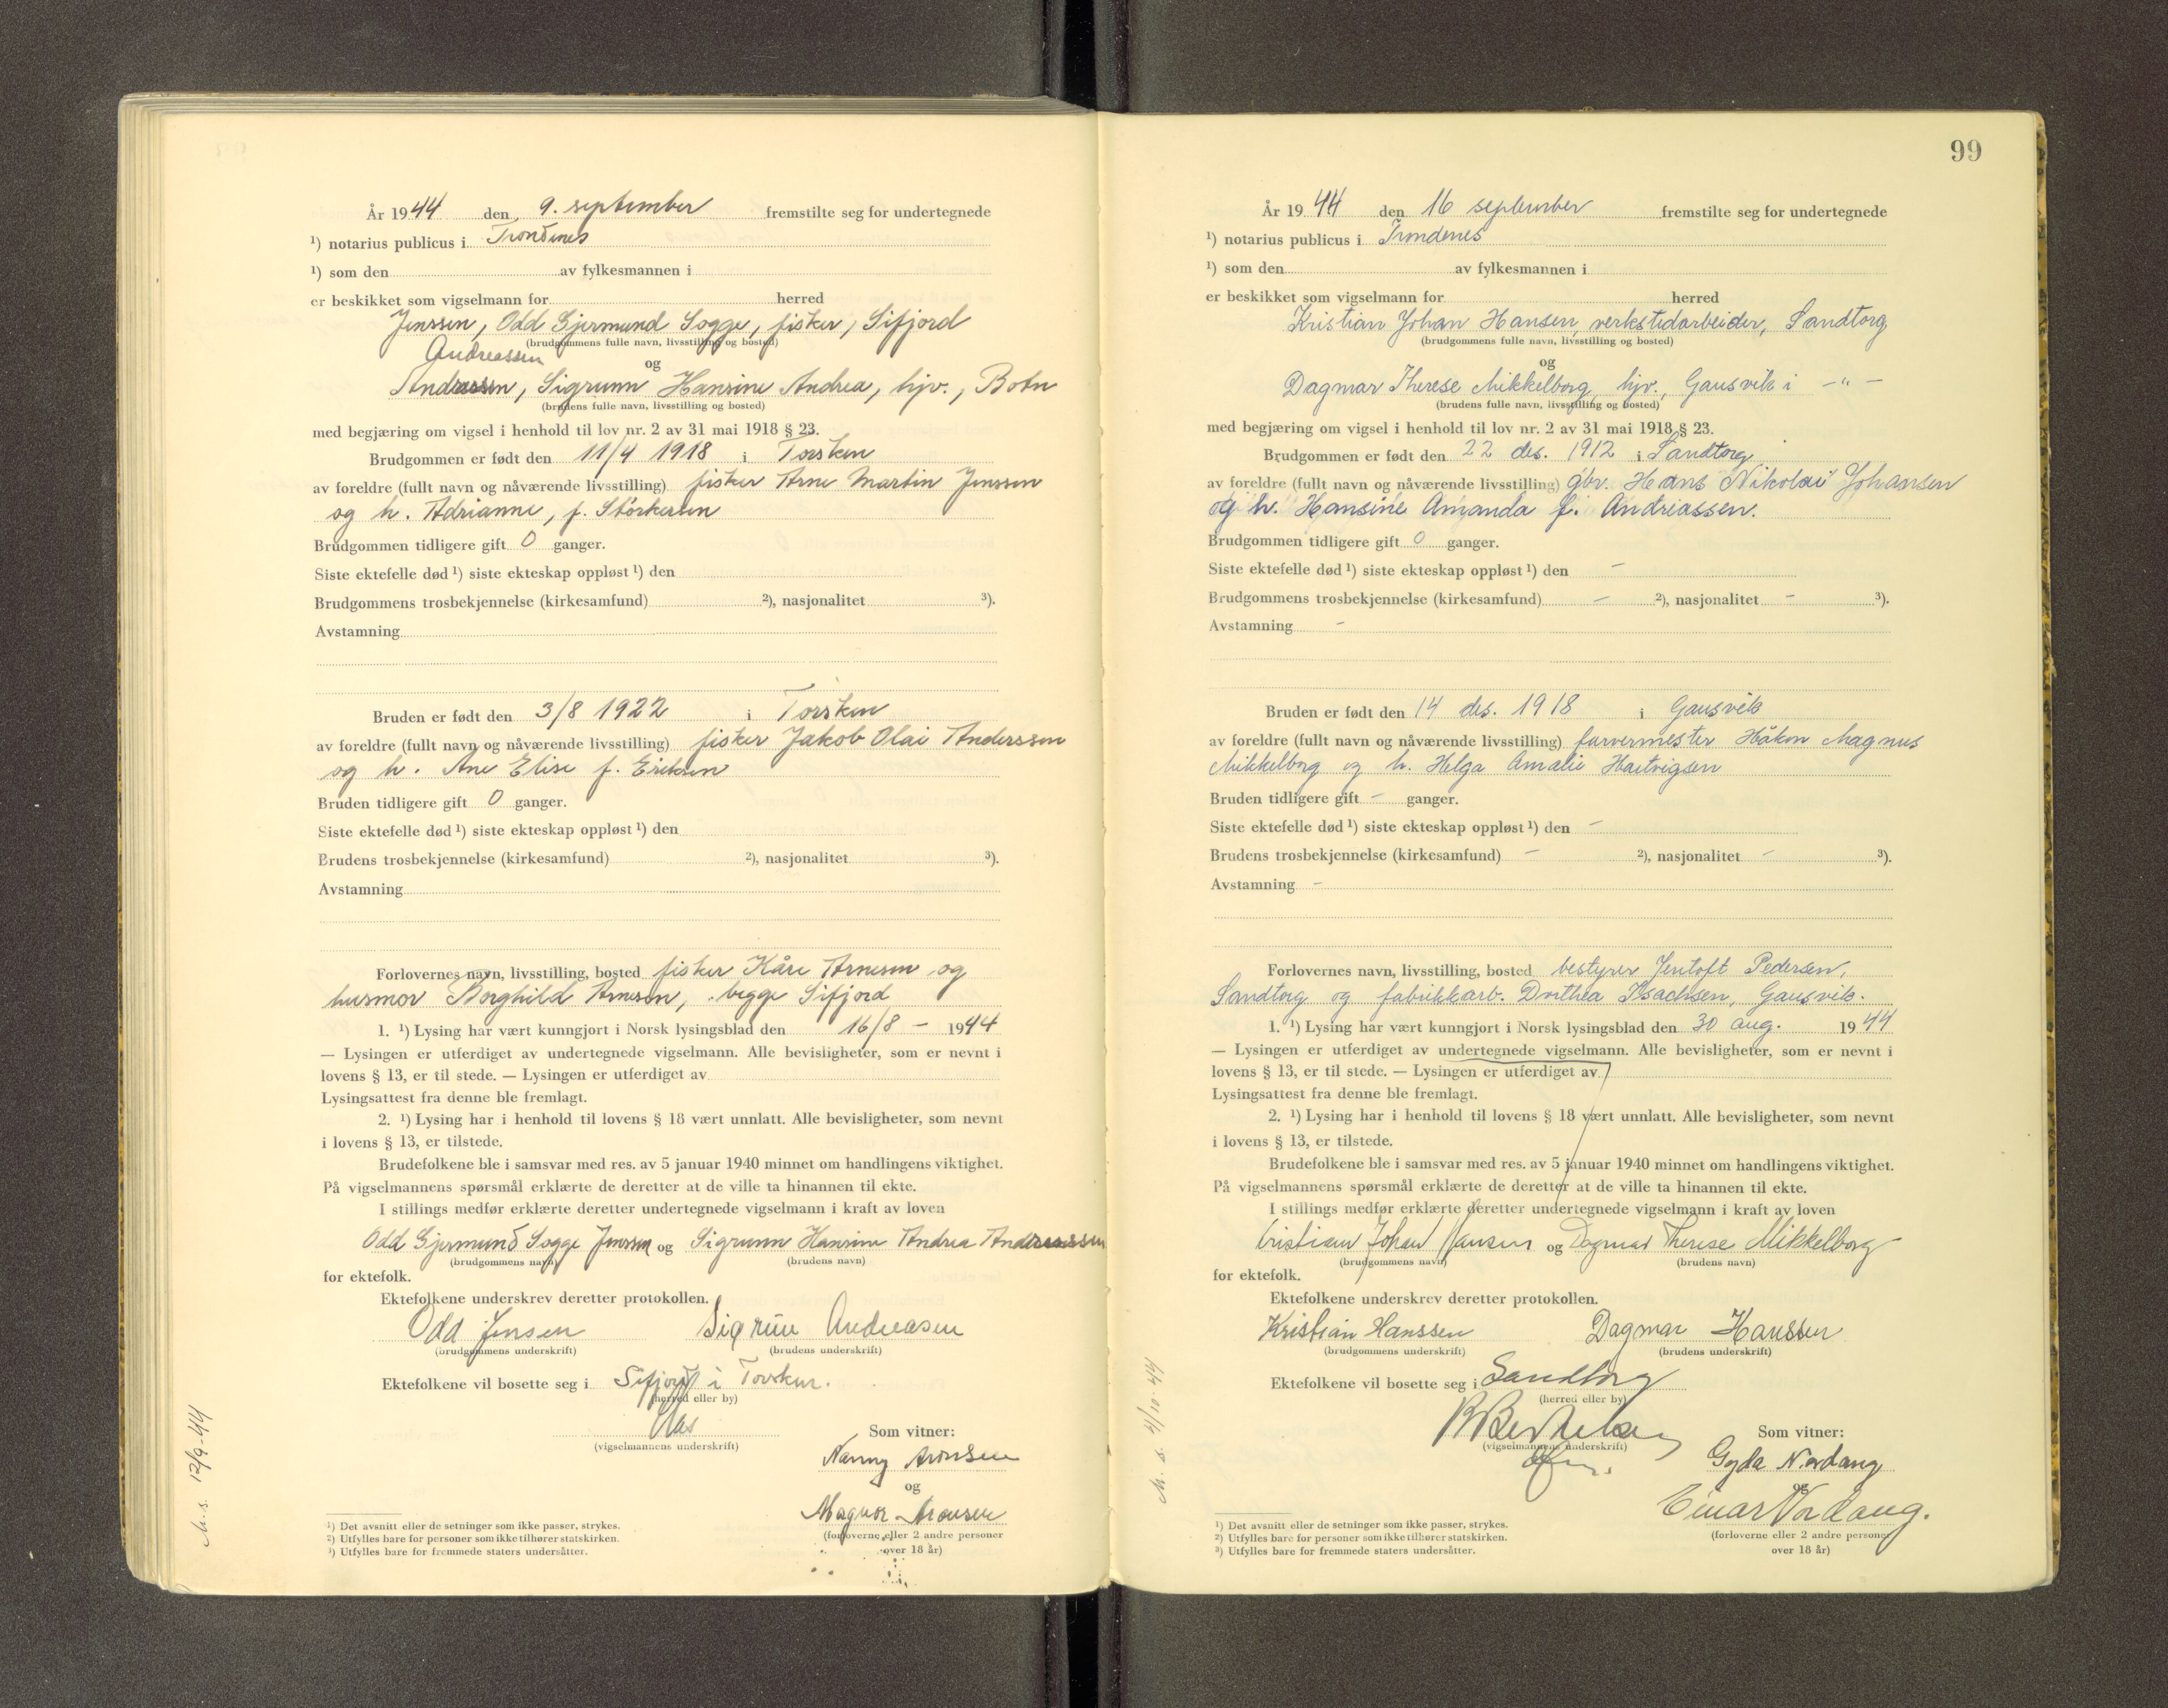 År 1944 den 9. september fremstilte seg for undertegnede
¹) notarius publicus i Trondenes
¹) som den av fylkesmannen i
er beskikket som vigselmann for herred
Jenssen, Odd Gjermund Sogge, fisker, Sifjord
(brudgommens fulle navn, livsstilling og bosted)
Andreassen
og
Andreassen, Sigrunn Hansine Andrea, hjv., Botn
(brudens fulle navn, livsstilling og bosted)
med begjæring om vigsel i henhold til lov nr. 2 av 31 mai 1918 § 23.
Brudgommen er født den 11/4 1918 i Torsken
av foreldre (fullt navn og nåværende livsstilling) fisker Arne Martin Jenssen
og h. Adrianne, f. Størkersen
Brudgommen tidligere gift 0 ganger.
Siste ektefelle død ¹) siste ekteskap oppløst ¹) den
Brudgommens trosbekjennelse (kirkesamfund) ²), nasjonalitet ³).
Avstamning
Bruden er født den 3/8 1922 i Torsken
av foreldre (fullt navn og nåværende livsstilling) fisker Jakob Olai Anderssen
og h. Ane Elise f. Eriksen
Bruden tidligere gift 0 ganger.
Siste ektefelle død ¹) siste ekteskap oppløst ¹) den
Brudens trosbekjennelse (kirkesamfund) ²), nasjonalitet ³).
Avstamning
Forlovernes navn, livsstilling, bosted fisker Kåre Arnesen og
husmor Borghild Arnesen, begge Sifjord
1. ¹) Lysing har vært kunngjort i Norsk lysingsblad den 16/8 - 1944
— Lysingen er utferdiget av undertegnede vigselmann. Alle bevisligheter, som er nevnt i
lovens § 13, er til stede. — Lysingen er utferdiget av
Lysingsattest fra denne ble fremlagt.
2. ¹) Lysing har i henhold til lovens § 18 vært unnlatt. Alle bevisligheter, som nevnt
i lovens § 13, er tilstede.
Brudefolkene ble i samsvar med res. av 5 januar 1940 minnet om handlingens viktighet.
På vigselmannens spørsmål erklærte de deretter at de ville ta hinannen til ekte.
I stillings medfør erklærte deretter undertegnede vigselmann i kraft av loven
Odd Gjermund Sogge Jenssen og Sigrunn Hansine Andrea Andreassen
(brudgommens navn) (brudens navn)
for ektefolk.
Ektefolkene underskrev deretter protokollen.
Odd Jensen Sigrun Andreasen
(brudgommens underskrift) (brudens underskrift)
Ektefolkene vil bosette seg i Sifjord i Torsken.
(herred eller by)
(vigselmannens underskrift)
Som vitner:
Nanny Aronsen
og
Magnor Aronsen
(forloverne eller 2 andre personer
over 18 år)
M.s. 12/9-44
¹) Det avsnitt eller de setninger som ikke passer, strykes.
²) Utfylles bare for personer som ikke tilhører statskirken.
³) Utfylles bare for fremmede staters undersåtter.
99
År 1944 den 16 september fremstilte seg for undertegnede
¹) notarius publicus i Trondenes
¹) som den av fylkesmannen i
er beskikket som vigselmann for herred
Kristian Johan Hansen, verkstedarbeider, Sandtorg
(brudgommens fulle navn, livsstilling og bosted)
og
Dagmar Therese Mikkelborg, hjv., Gausvik i -"-
(brudens fulle navn, livsstilling og bosted)
med begjæring om vigsel i henhold til lov nr. 2 av 31 mai 1918 § 23.
Brudgommen er født den 22 des. 1912 i Sandtorg
av foreldre (fullt navn og nåværende livsstilling) gbr. Hans Nikolai Johansen
og h. Hansine Amanda f. Andreassen.
Brudgommen tidligere gift 0 ganger.
Siste ektefelle død ¹) siste ekteskap oppløst ¹) den -
Brudgommens trosbekjennelse (kirkesamfund) - ²), nasjonalitet - ³).
Avstamning -
Bruden er født den 14 des. 1918 i Gausvik
av foreldre (fullt navn og nåværende livsstilling) farvermester Håkon Magnus
Mikkelborg og h. Helga Amalie Hartvigsen
Bruden tidligere gift - ganger.
Siste ektefelle død ¹) siste ekteskap oppløst ¹) den -
Brudens trosbekjennelse (kirkesamfund) - ²), nasjonalitet - ³).
Avstamning -
Forlovernes navn, livsstilling, bosted bestyrer Jentoft Pedersen,
Sandtorg og fabrikkarb. Dorthea Isachsen, Gausvik.
1. ¹) Lysing har vært kunngjort i Norsk lysingsblad den 30 aug. 1944
— Lysingen er utferdiget av undertegnede vigselmann. Alle bevisligheter, som er nevnt i
lovens § 13, er til stede. — Lysingen er utferdiget av
Lysingsattest fra denne ble fremlagt.
2. ¹) Lysing har i henhold til lovens § 18 vært unnlatt. Alle bevisligheter, som nevnt
i lovens § 13, er tilstede.
Brudefolkene ble i samsvar med res. av 5 januar 1940 minnet om handlingens viktighet.
På vigselmannens spørsmål erklærte de deretter at de ville ta hinannen til ekte.
I stillings medfør erklærte deretter undertegnede vigselmann i kraft av loven
Kristian Johan Hansen og Dagmar Therese Mikkelborg
(brudgommens navn) (brudens navn)
for ektefolk.
Ektefolkene underskrev deretter protokollen.
Kristian Hanssen Dagmar Hanssen
(brudgommens underskrift) (brudens underskrift)
Ektefolkene vil bosette seg i Sandtorg
(herred eller by)
(vigselmannens underskrift)
Som vitner:
Gyda Nordang
og
Einar Nordang.
(forloverne eller 2 andre personer
over 18 år)
M. s. 4/10-44
¹) Det avsnitt eller de setninger som ikke passer, strykes.
²) Utfylles bare for personer som ikke tilhører statskirken.
³) Utfylles bare for fremmede staters undersåtter.